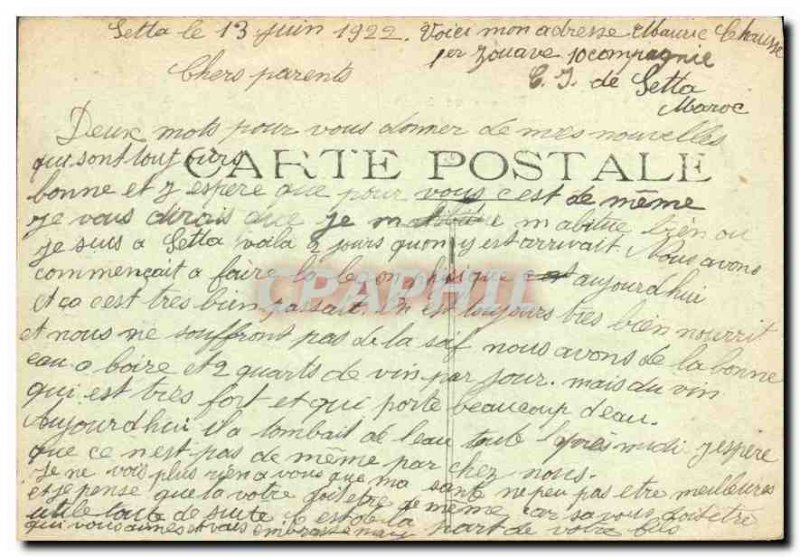 Setta le 13 juin 1922. Voici mon adresse Maurice Chausse
1er Zouave 10 compagnie
Chers parents
C. I. de Setta
Maroc
Deux mots pour vous donner de mes nouvelles
qui sont toutjours
CARTE POSTALE
bonne et j espère que pour vous c est de même
je vous dirais que je m abitue bien ou
je suis a Setta voila 2 jours qu on y est arrivait. Nous avons
commençait a faire aujourdhui
et ça c est très bien passait. On est toujours très bien nourrit
CPAPHIL
et nous ne souffront pas de la saif nous avons de la bonne
eau a boire et 2 quarts de vin par jour. mais du vin
qui est très fort et qui porte beaucoup d eau.
Aujourdhui il a tombait de l eau toute l après midi j espère
que ce n est pas de même par chez nous.
Je ne vois plus rien a vous que ma santé ne peu pas etre meilleures
et je pense que la votre doit etre de même car sa vous doit etre
utile toute de suite c est de la part de votre fils
qui vous aimes et vous embrasse